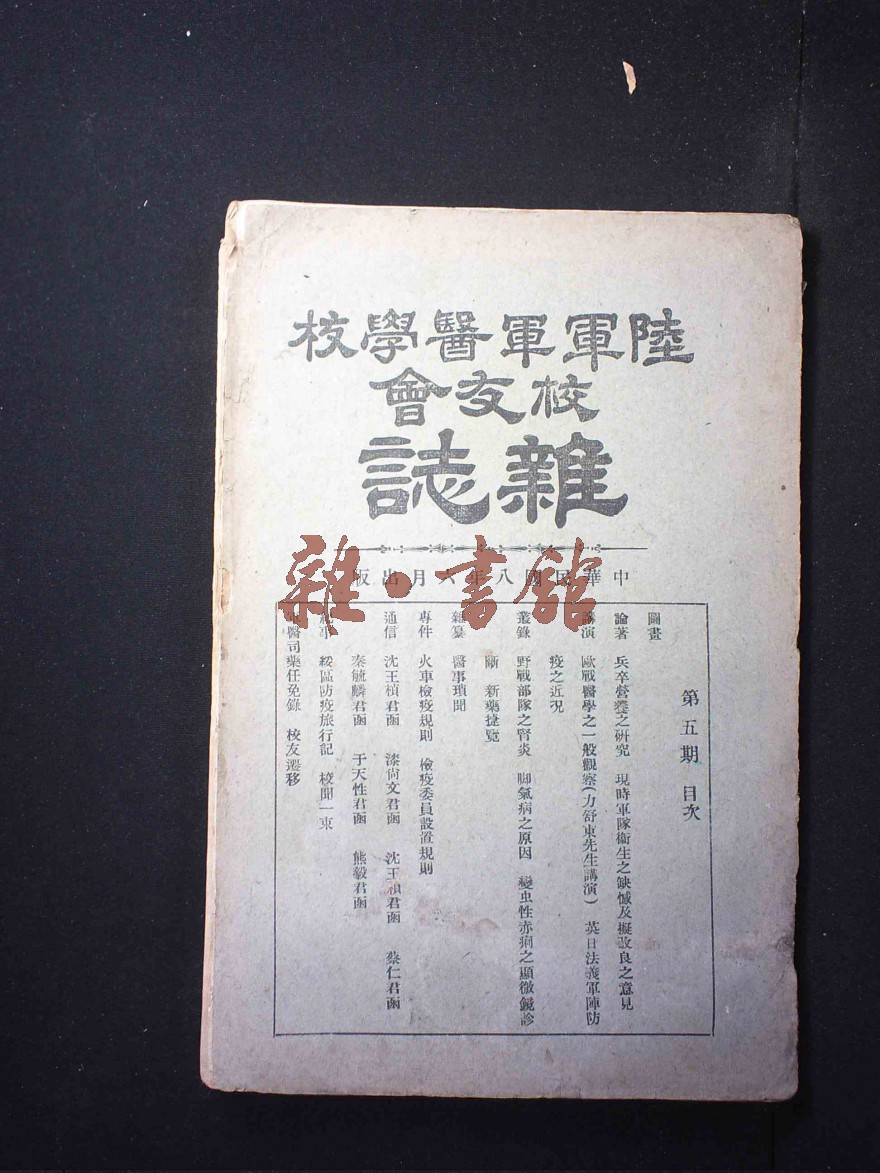 陸軍軍醫學校
校友會
雜誌
中華民國八年六月出版
雜·書館
第五期 目次
圖畫
論著 兵卒營養之研究 現時軍隊衛生之缺憾及擬改良之意見
講演 歐戰醫學之一般觀察(力舒東先生講演) 英日法義軍陣防
疫之近況
叢錄 野戰部隊之腎炎 脚氣病之原因 變虫性赤痢之顯微鏡診
斷 新藥捷覽
雜纂 醫事瑣聞
專件 火車檢疫規則 檢疫委員設置規則
通信 沈王楨君函 漆尙文君函 沈王楨君函 蔡仁君函
秦毓麟君函 于天性君函 熊毅君函
綏區防疫旅行記 校聞一束
軍醫司藥任免錄 校友遷移